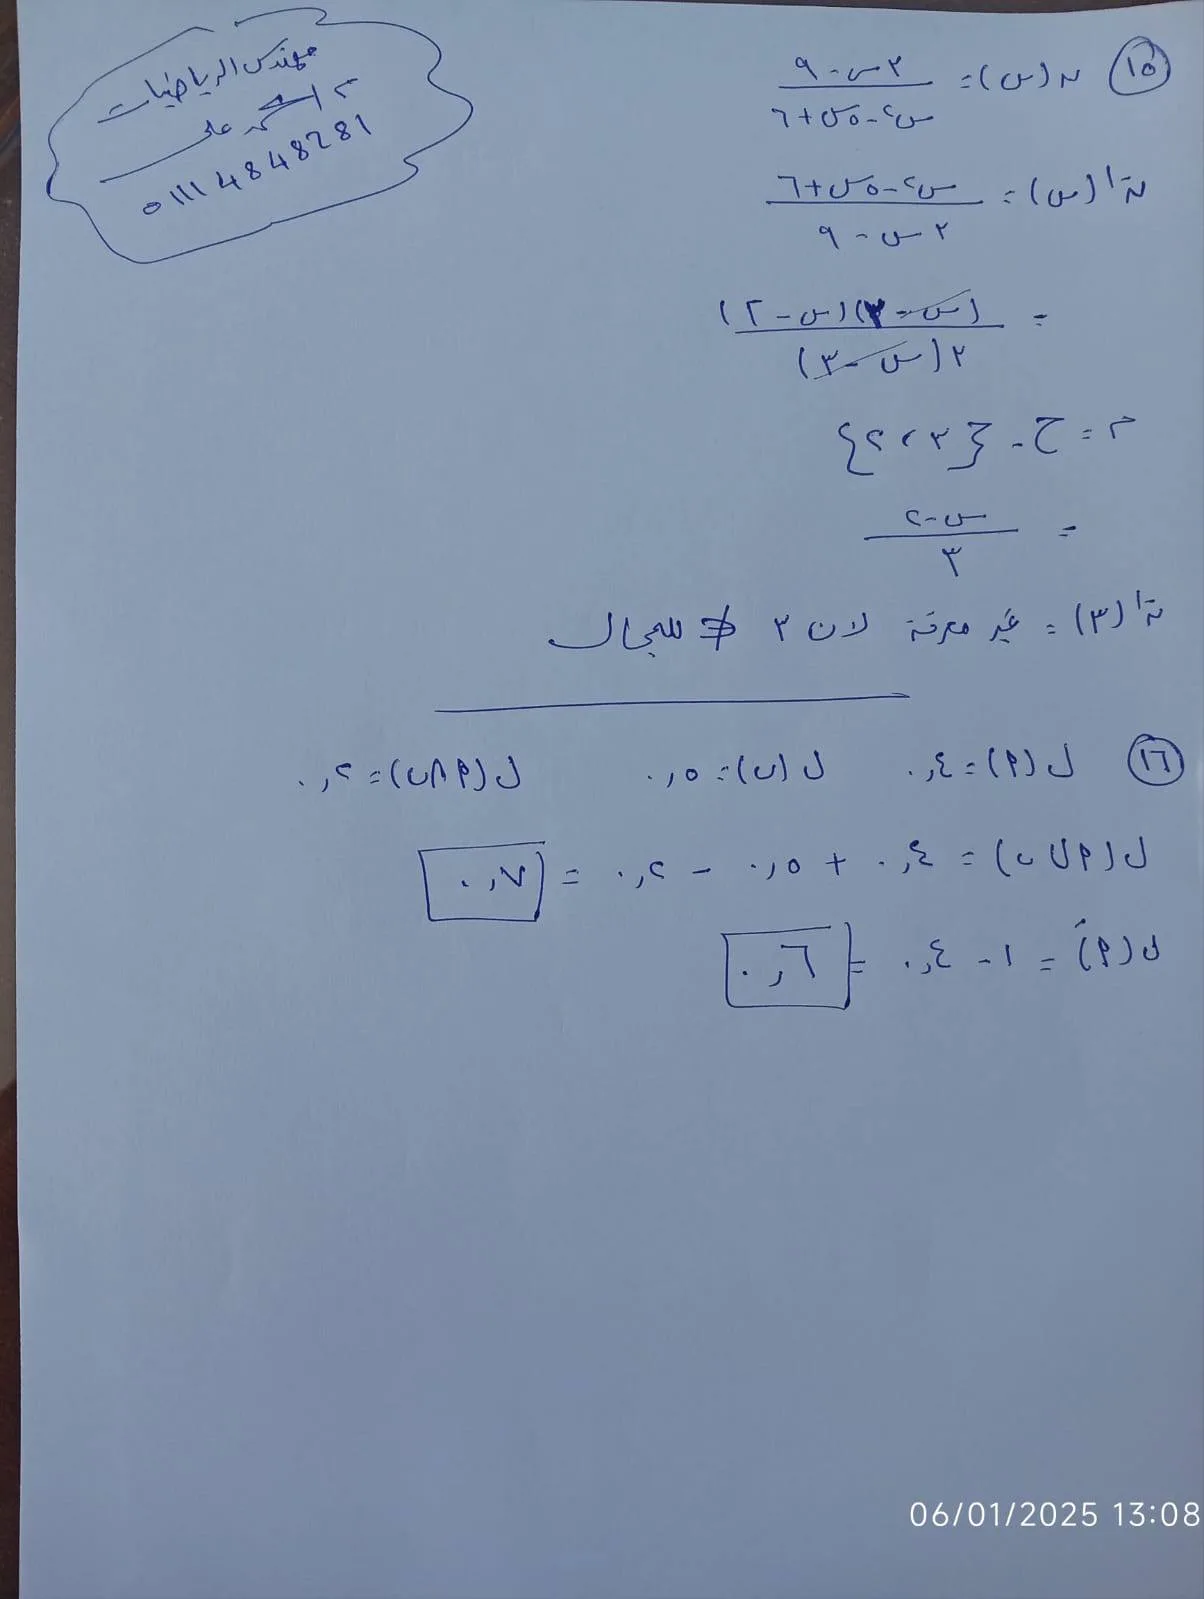 مهندس الرياضيات
م / احمد على
01114848281
١٥ ن(س) = ٣س - ٩ / س٢ - ٥س + ٦
ن-١(س) = س٢ - ٥س + ٦ / ٣س - ٩
= (س - ٣)(س - ٢) / ٣(س - ٣)
م = ح - {٣ ، ٢}
= س - ٢ / ٣
ن-١(٣) = غير معرفة لان ٣ ∌ للمجال
١٦ ل(P) = ٠,٤ ل(ب) = ٠,٥ ل(P∩ب) = ٠,٢
ل(P∪ب) = ٠,٤ + ٠,٥ - ٠,٢ = ٠,٧
ل(P') = ١ - ٠,٤ = ٠,٦
06/01/2025 13:08